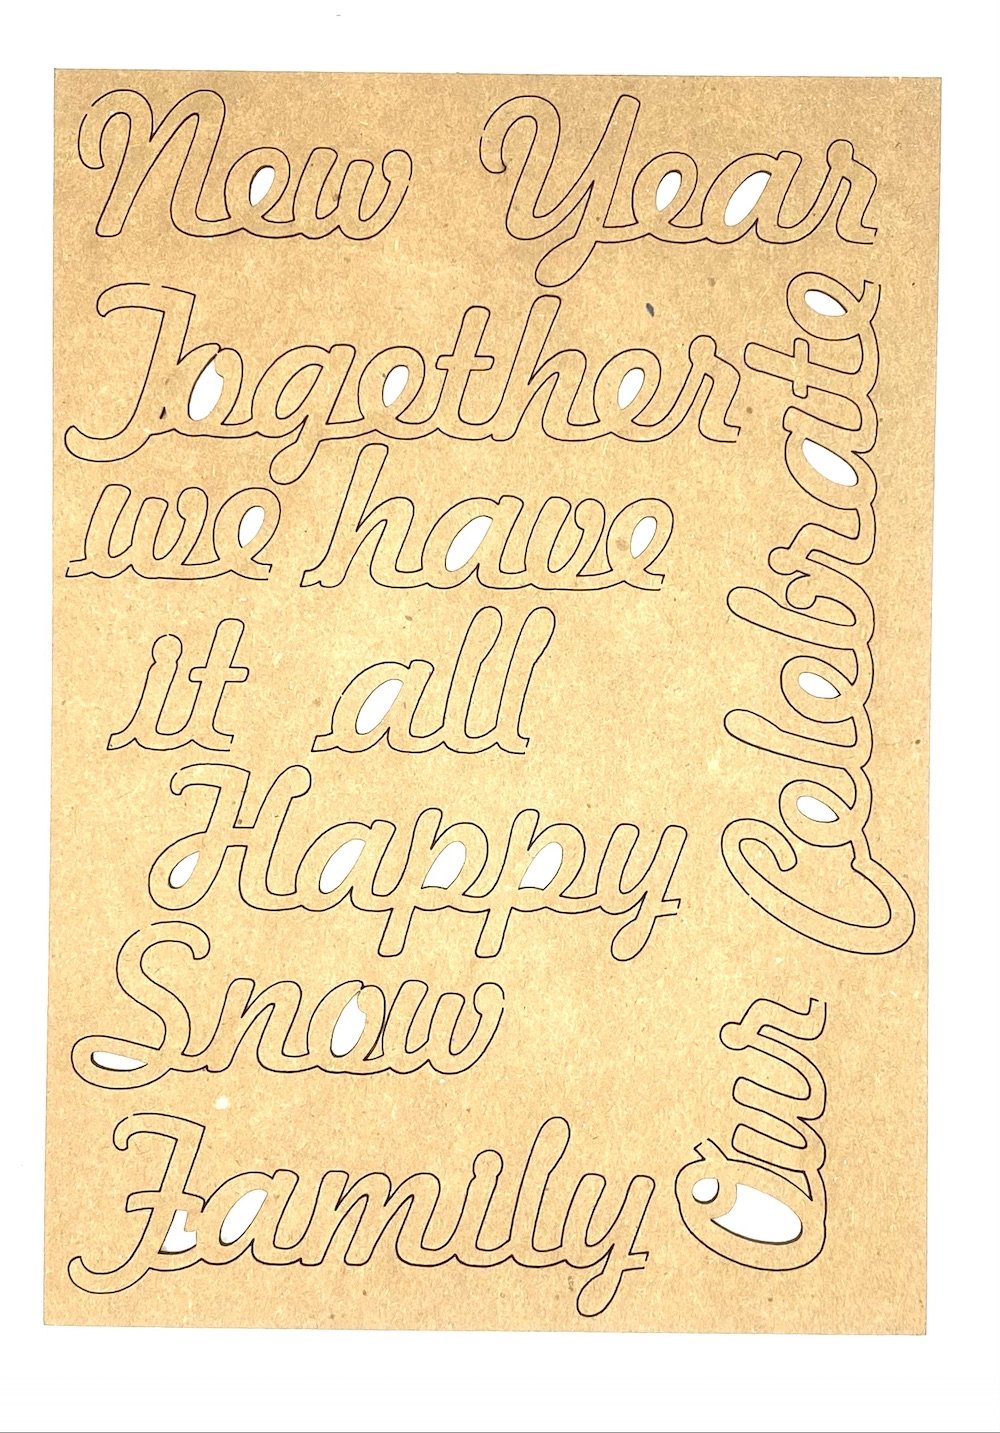 New Year
Together
we have
it all
Happy
Snow
Family
Celebrate
Our